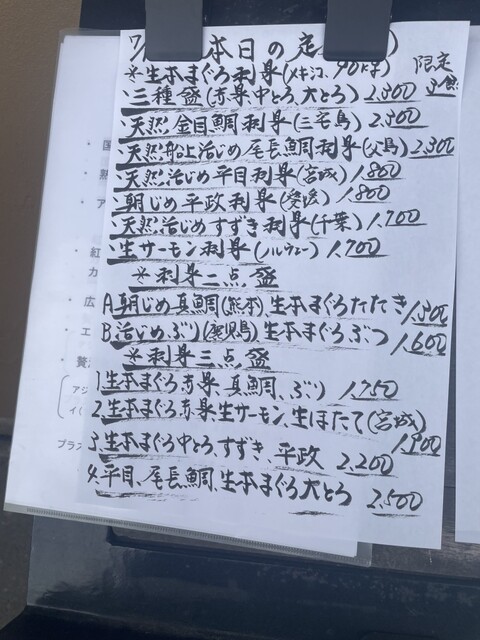 7/ 本日の定 )
*生本まぐろ刺身(メキシコ、90kg) 限定
・三種盛(赤身中とろ、大とろ) 2,300 3食
・天然 金目鯛刺身(三宅島) 2,300
・天然船上活じめ尾長鯛刺身(父島) 2,300
・天然活じめ平目刺身(宮城) 1,800
・朝じめ平政刺身(愛媛) 1,800
・天然活じめすずき刺身(千葉) 1,700
・生サーモン刺身(ノルウェー) 1,700
*刺身二点盛
A.朝じめ真鯛(熊本)、生本まぐろたたき 1,300
B.活じめぶり(鹿児島)生本まぐろぶつ 1,600
*刺身三点盛
1.生本まぐろ赤身、真鯛、ぶり 1,750
2.生本まぐろ赤身、生サーモン、生ほたて(宮城) 1,900
3.生本まぐろ中とろ、すずき、平政 2,200
4.平目、尾長鯛、生本まぐろ大とろ 2,500
・国
・熟
・ア
・紅
カ
・広
・エ
・贅
アジ
イ
プラス